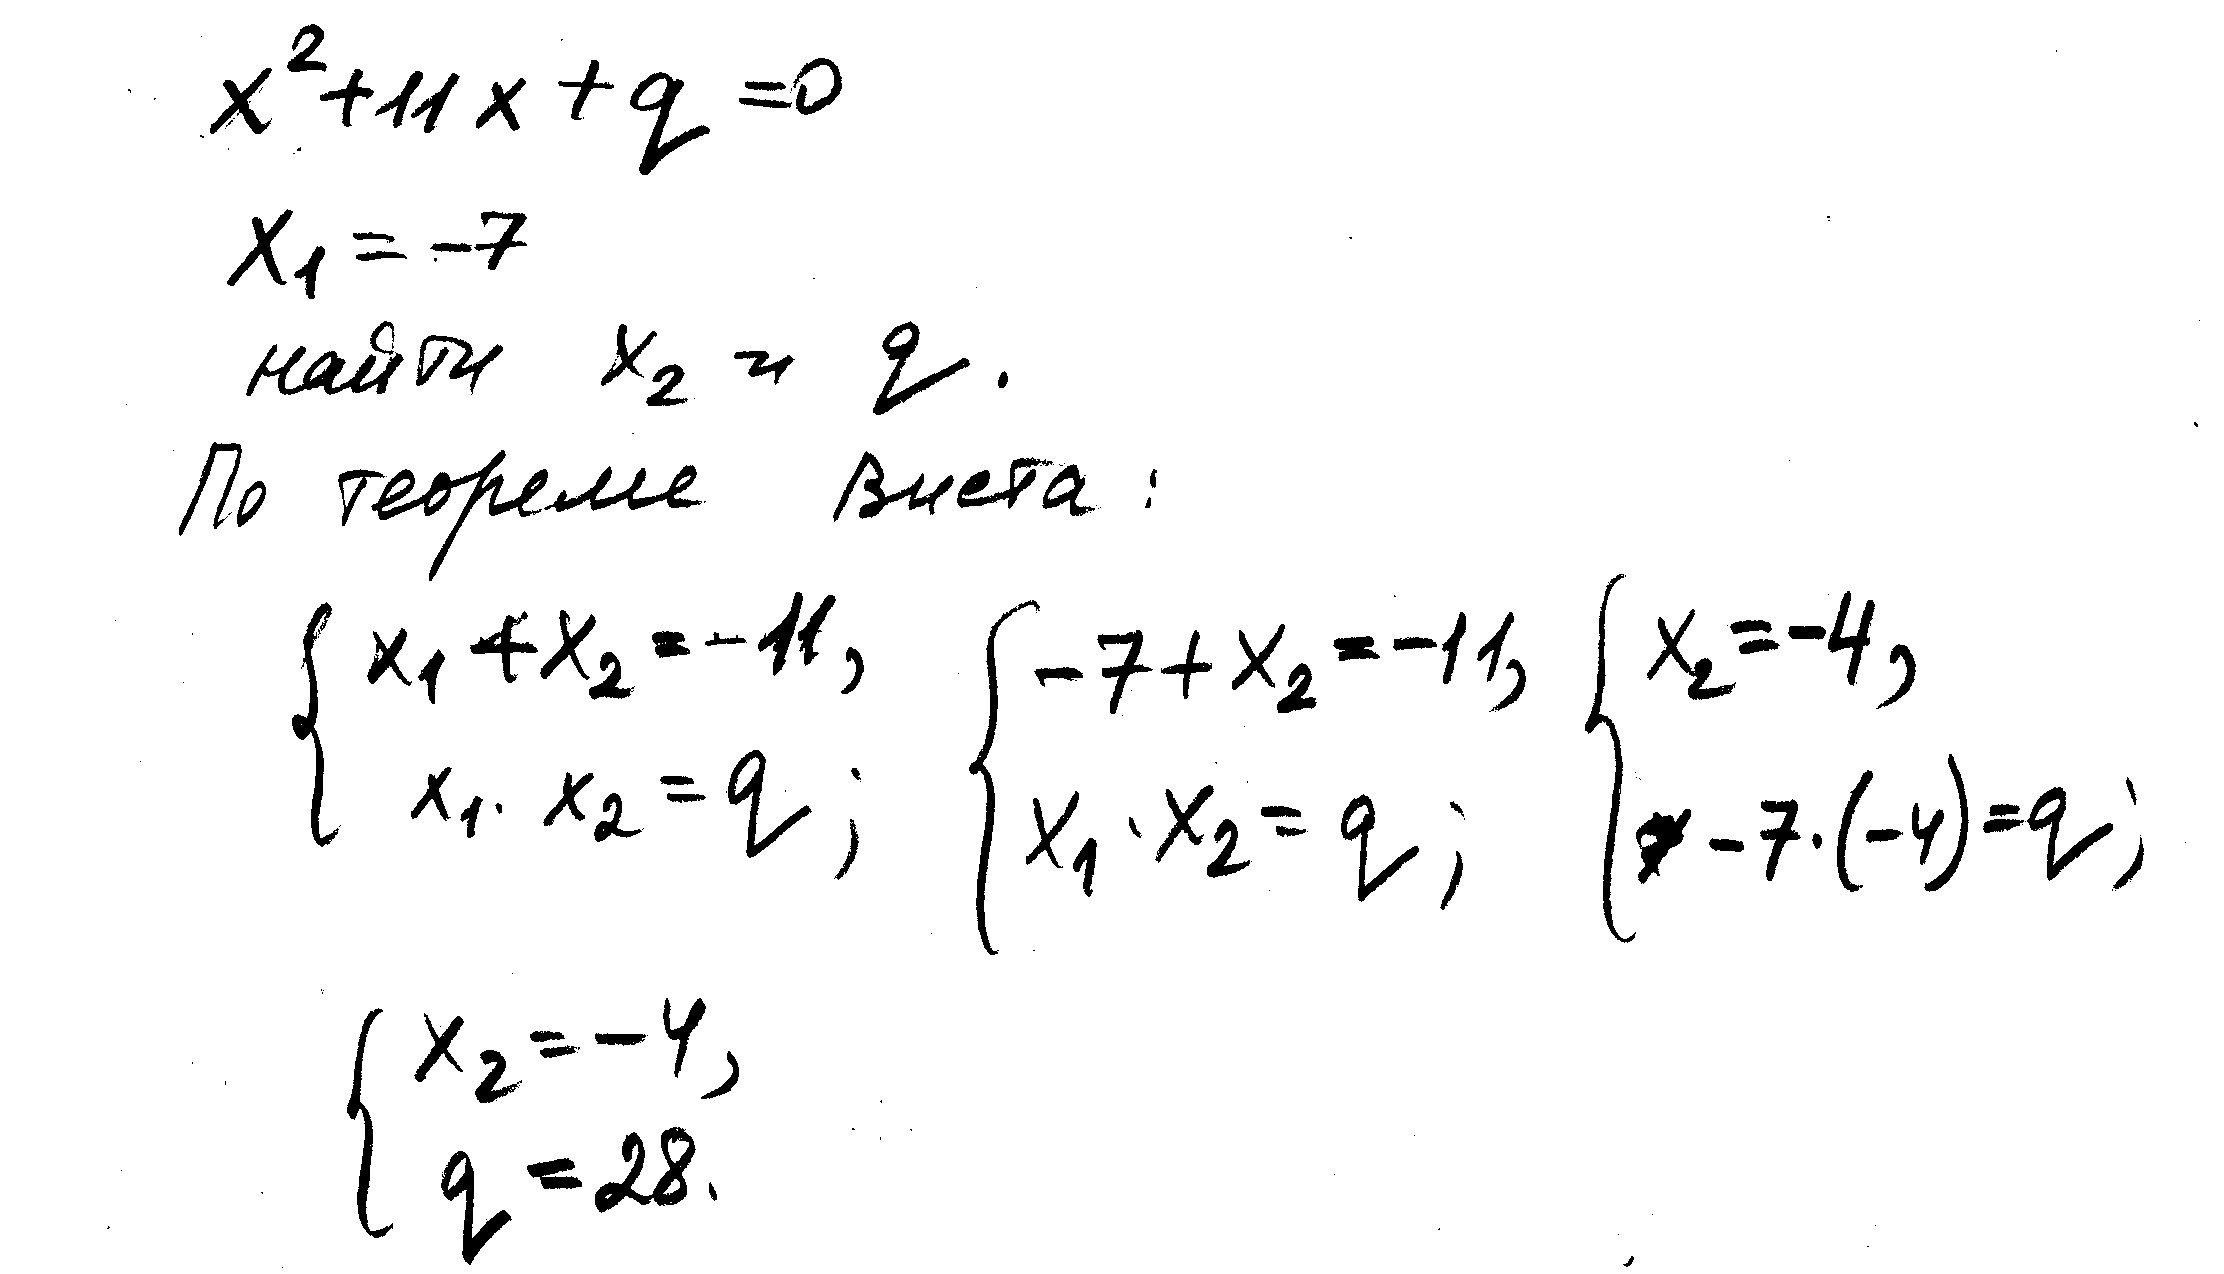 x² + 11x + q = 0
x₁ = -7
найти x₂ и q.
По теореме Виета:
{ x₁ + x₂ = -11, { -7 + x₂ = -11, { x₂ = -4,
x₁ · x₂ = q; x₁ · x₂ = q; -7 · (-4) = q;
{ x₂ = -4,
q = 28.